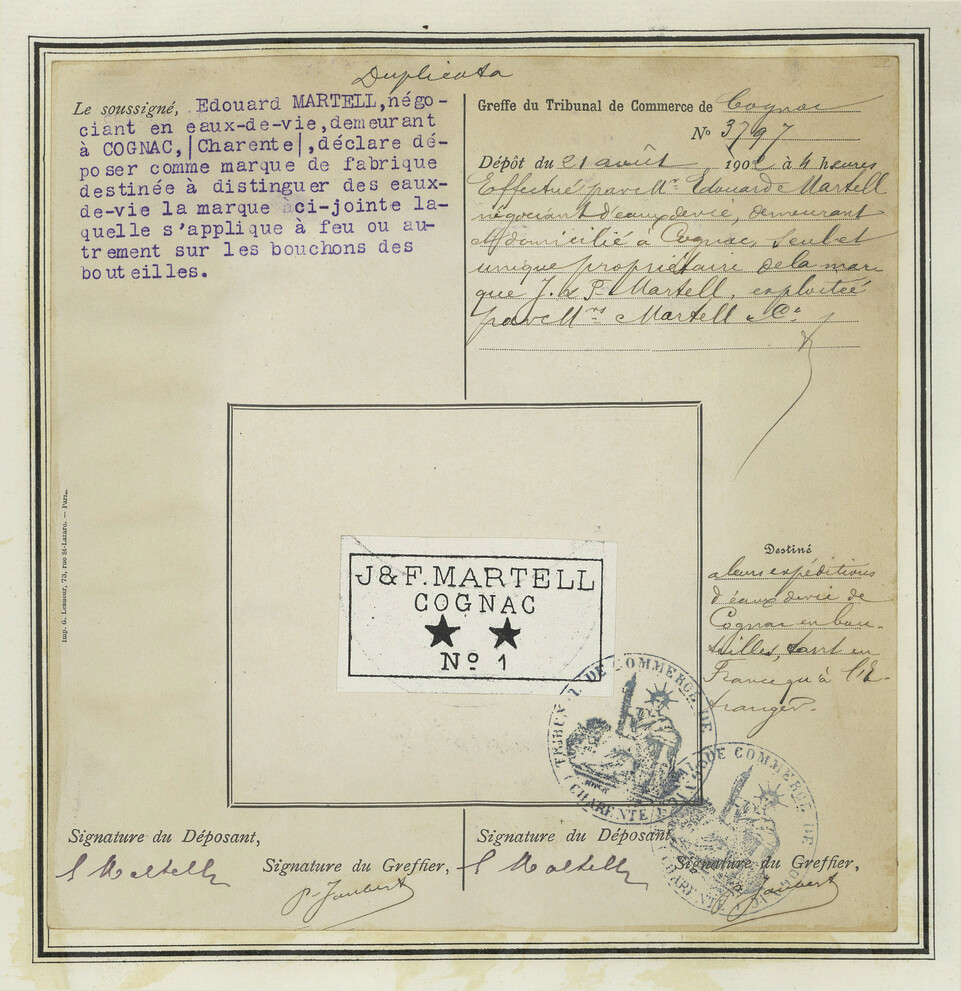 Duplicata
Le soussigné, Edouard MARTELL, négo-
ciant en eaux-de-vie, demeurant
à COGNAC, |Charente|, déclare dé-
poser comme marque de fabrique
destinée à distinguer des eaux-
de-vie la marque ci-jointe la-
quelle s'applique à feu ou au-
trement sur les bouchons des
bouteilles.
Greffe du Tribunal de Commerce de Cognac
No 3797
Dépôt du 21 août 190 à 4 heures
Effectué par Mr. Edouard Martell
négociant d'eaux de vie, demeurant
et domicilié à Cognac, seul et
unique propriétaire de la mar
que J. & F. Martell, exploitée
par Mrs Martell & Co.
J & F. MARTELL
COGNAC
★ ★
No 1
Destiné
a leurs expéditions
d'eaux de vie de
Cognac en bou-
teilles, tant en
France qu'à l'E-
tranger.
TRIBUNAL DE COMMERCE DE
CHARENTE
DE COMMERCE DE
CHARENTE
Signature du Déposant,
E Martell
Signature du Greffier,
P. Jaubert
Signature du Déposant
E Martell
Signature du Greffier,
Jaubert
Imp. G. Lesueur, 73, rue St-Lazare. — Paris.